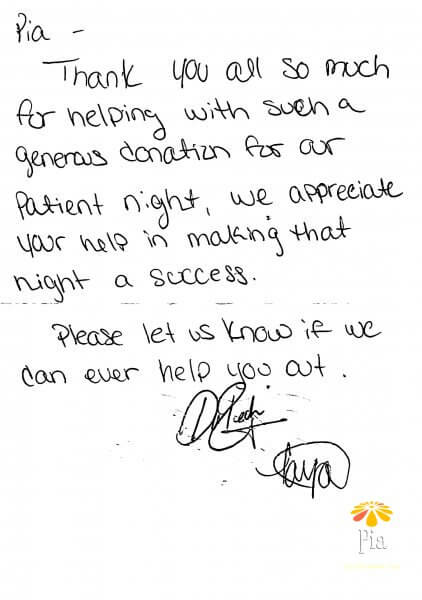 Pia -
Thank you all so much
for helping with such a
generous donation for our
Patient night, we appreciate
your help in making that
night a success.
Please let us know if we
can ever help you out.
Pia